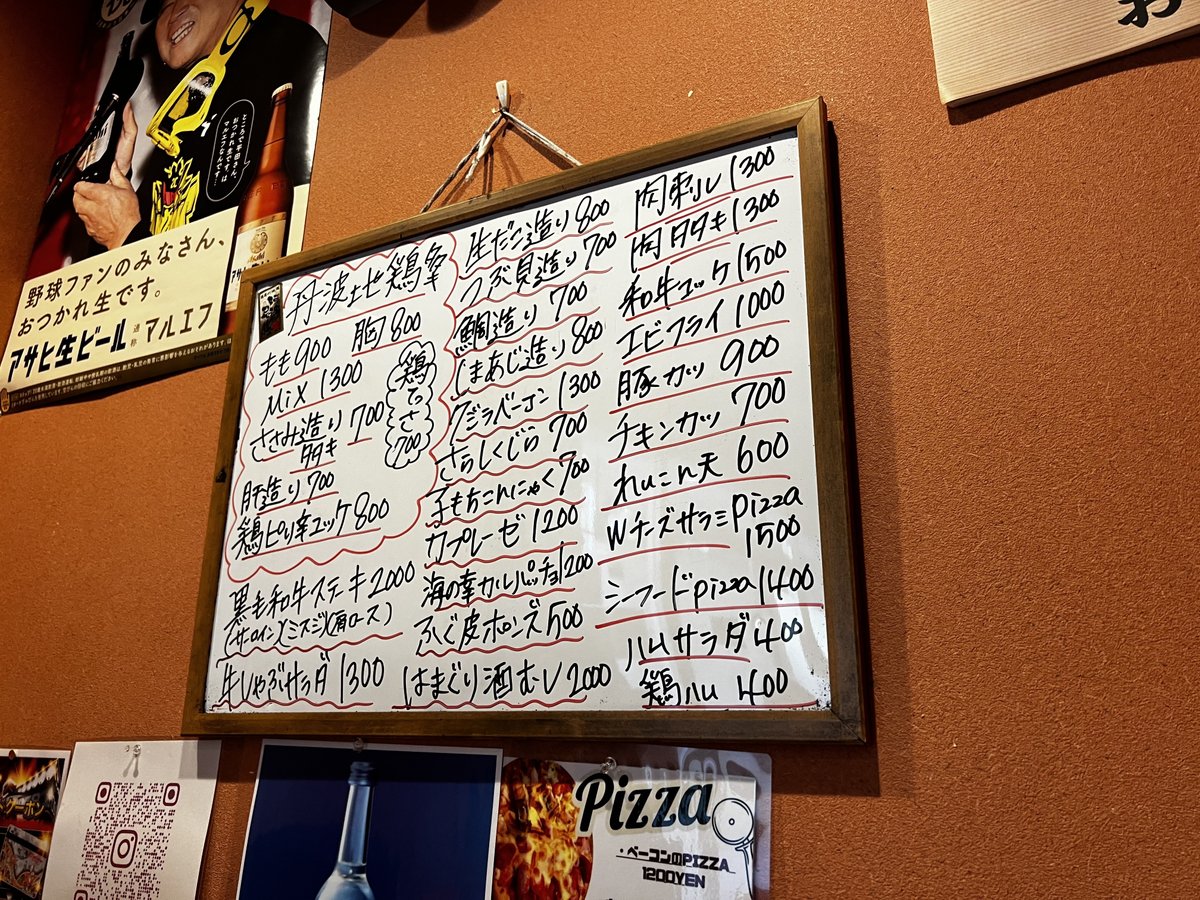 ところで平田さん、
おつかれ生です。
マルエフなんです…
野球ファンのみなさん、
おつかれ生です。
アサヒ生ビール 通称 マルエフ
お
丹波土地鶏
もも900 胸800
MiX 1300
ささみ造り 700
タタキ
鶏てっさ
700
肝造り 700
鶏ピリ辛ユッケ 800
黒毛和牛ステーキ 2000
(サーロイン)(ミスジ)(肩ロース)
牛しゃぶサラダ 1300
生だこ造り 800
つぶ貝造り 700
鯛造り 700
しまあじ造り 800
クジラベーコン 1300
さらしくじら 700
子もちこんにゃく 700
カプレーゼ 1200
海の幸カルパッチョ 1200
ふぐ皮ポンズ 500
はまぐり酒むし 2000
肉刺し 1300
肉タタキ 1300
和牛ユッケ 1500
エビフライ 1000
豚カツ 900
チキンカツ 700
れんこん天 600
Wチーズサラミpizza
1500
シーフードpizza 1400
ハムサラダ 400
鶏ハム 400
Pizza
・ベーコンのPIZZA
1200YEN